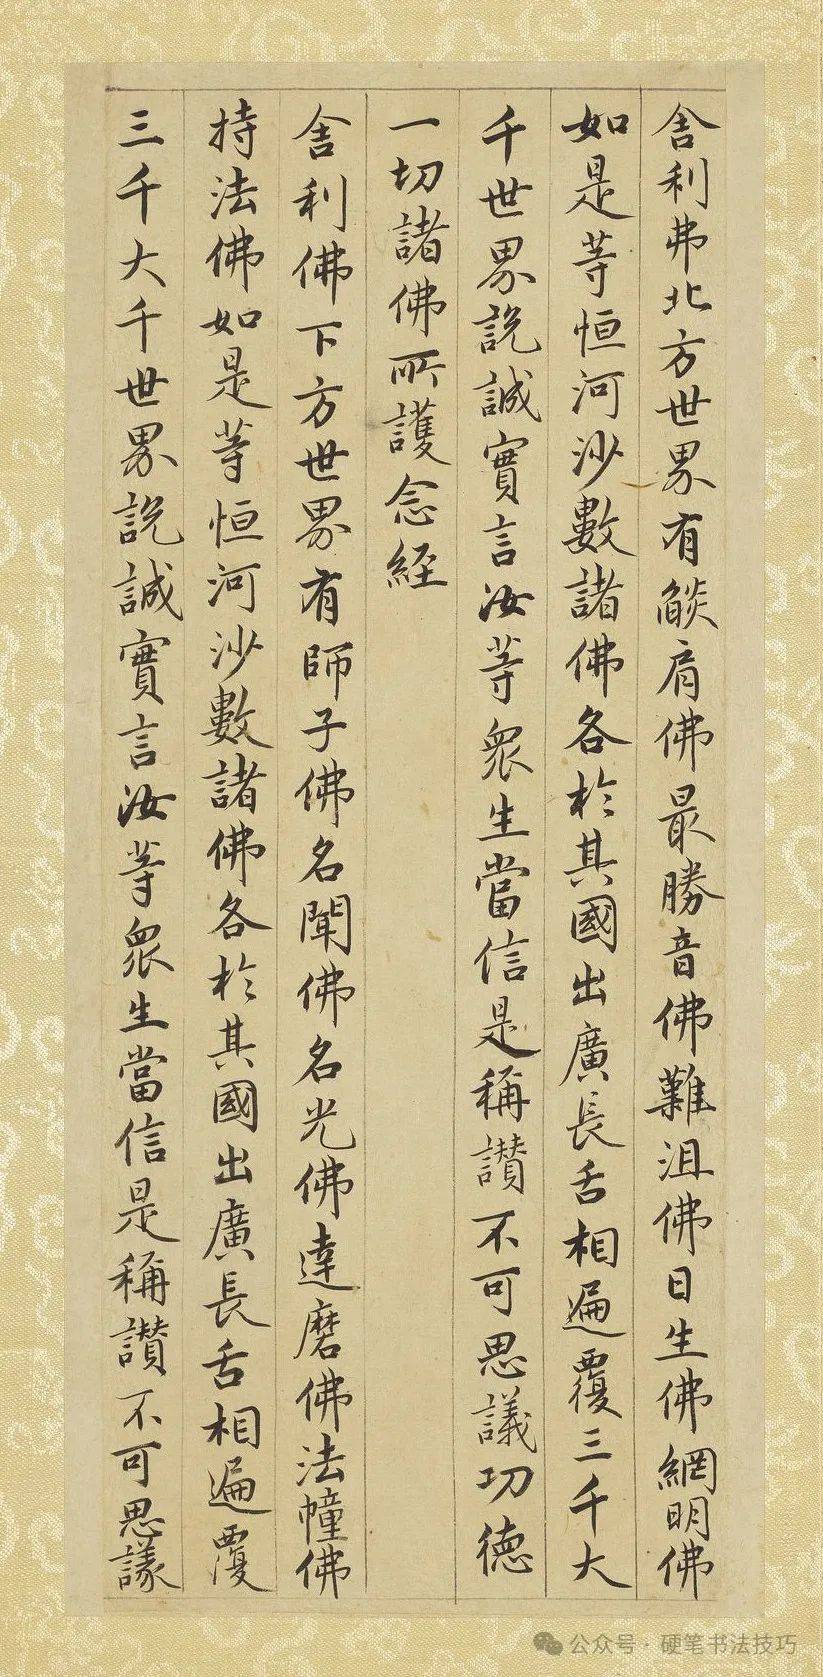 舍利弗北方世界有燄肩佛最勝音佛難沮佛日生佛網明佛
如是等恒河沙數諸佛各於其國出廣長舌相遍覆三千大
千世界說誠實言汝等眾生當信是稱讃不可思議功德
一切諸佛所護念經
舍利佛下方世界有師子佛名聞佛名光佛達磨佛法幢佛
持法佛如是等恒河沙數諸佛各於其國出廣長舌相遍覆
三千大千世界說誠實言汝等眾生當信是稱讃不可思議
公众号·硬笔书法技巧